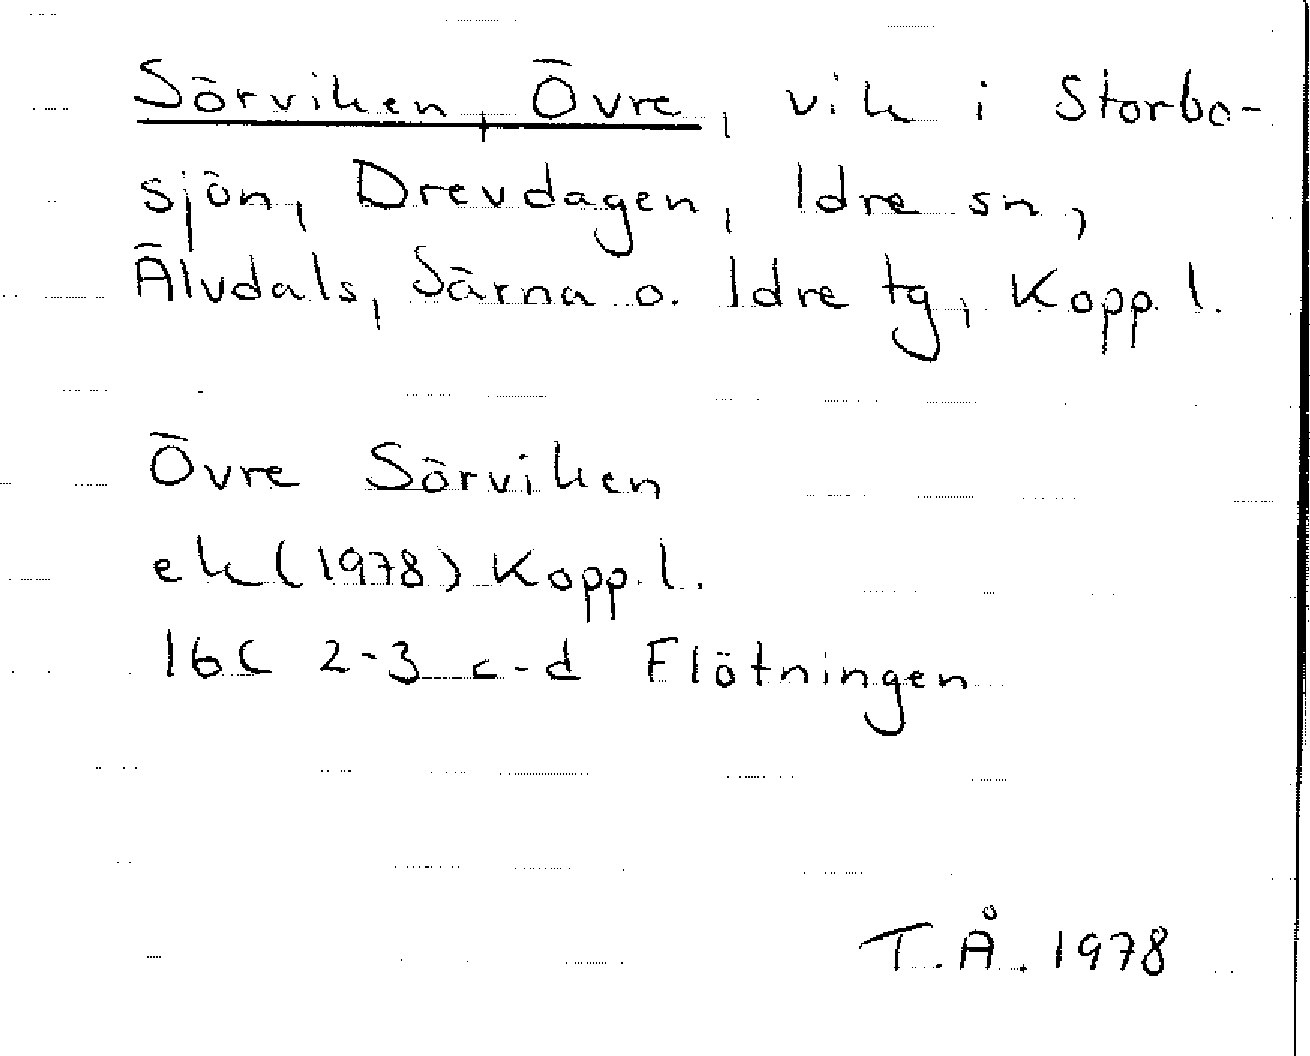 Sörviken, Övre, vik i Storbo-
sjön, Drevdagen, Idre sn,
Älvdals, Särna o. Idre tg, Kopp. l.
Övre Sörviken
ek (1978) Kopp. l.
16C 2-3 c-d Flötningen
T.Å. 1978